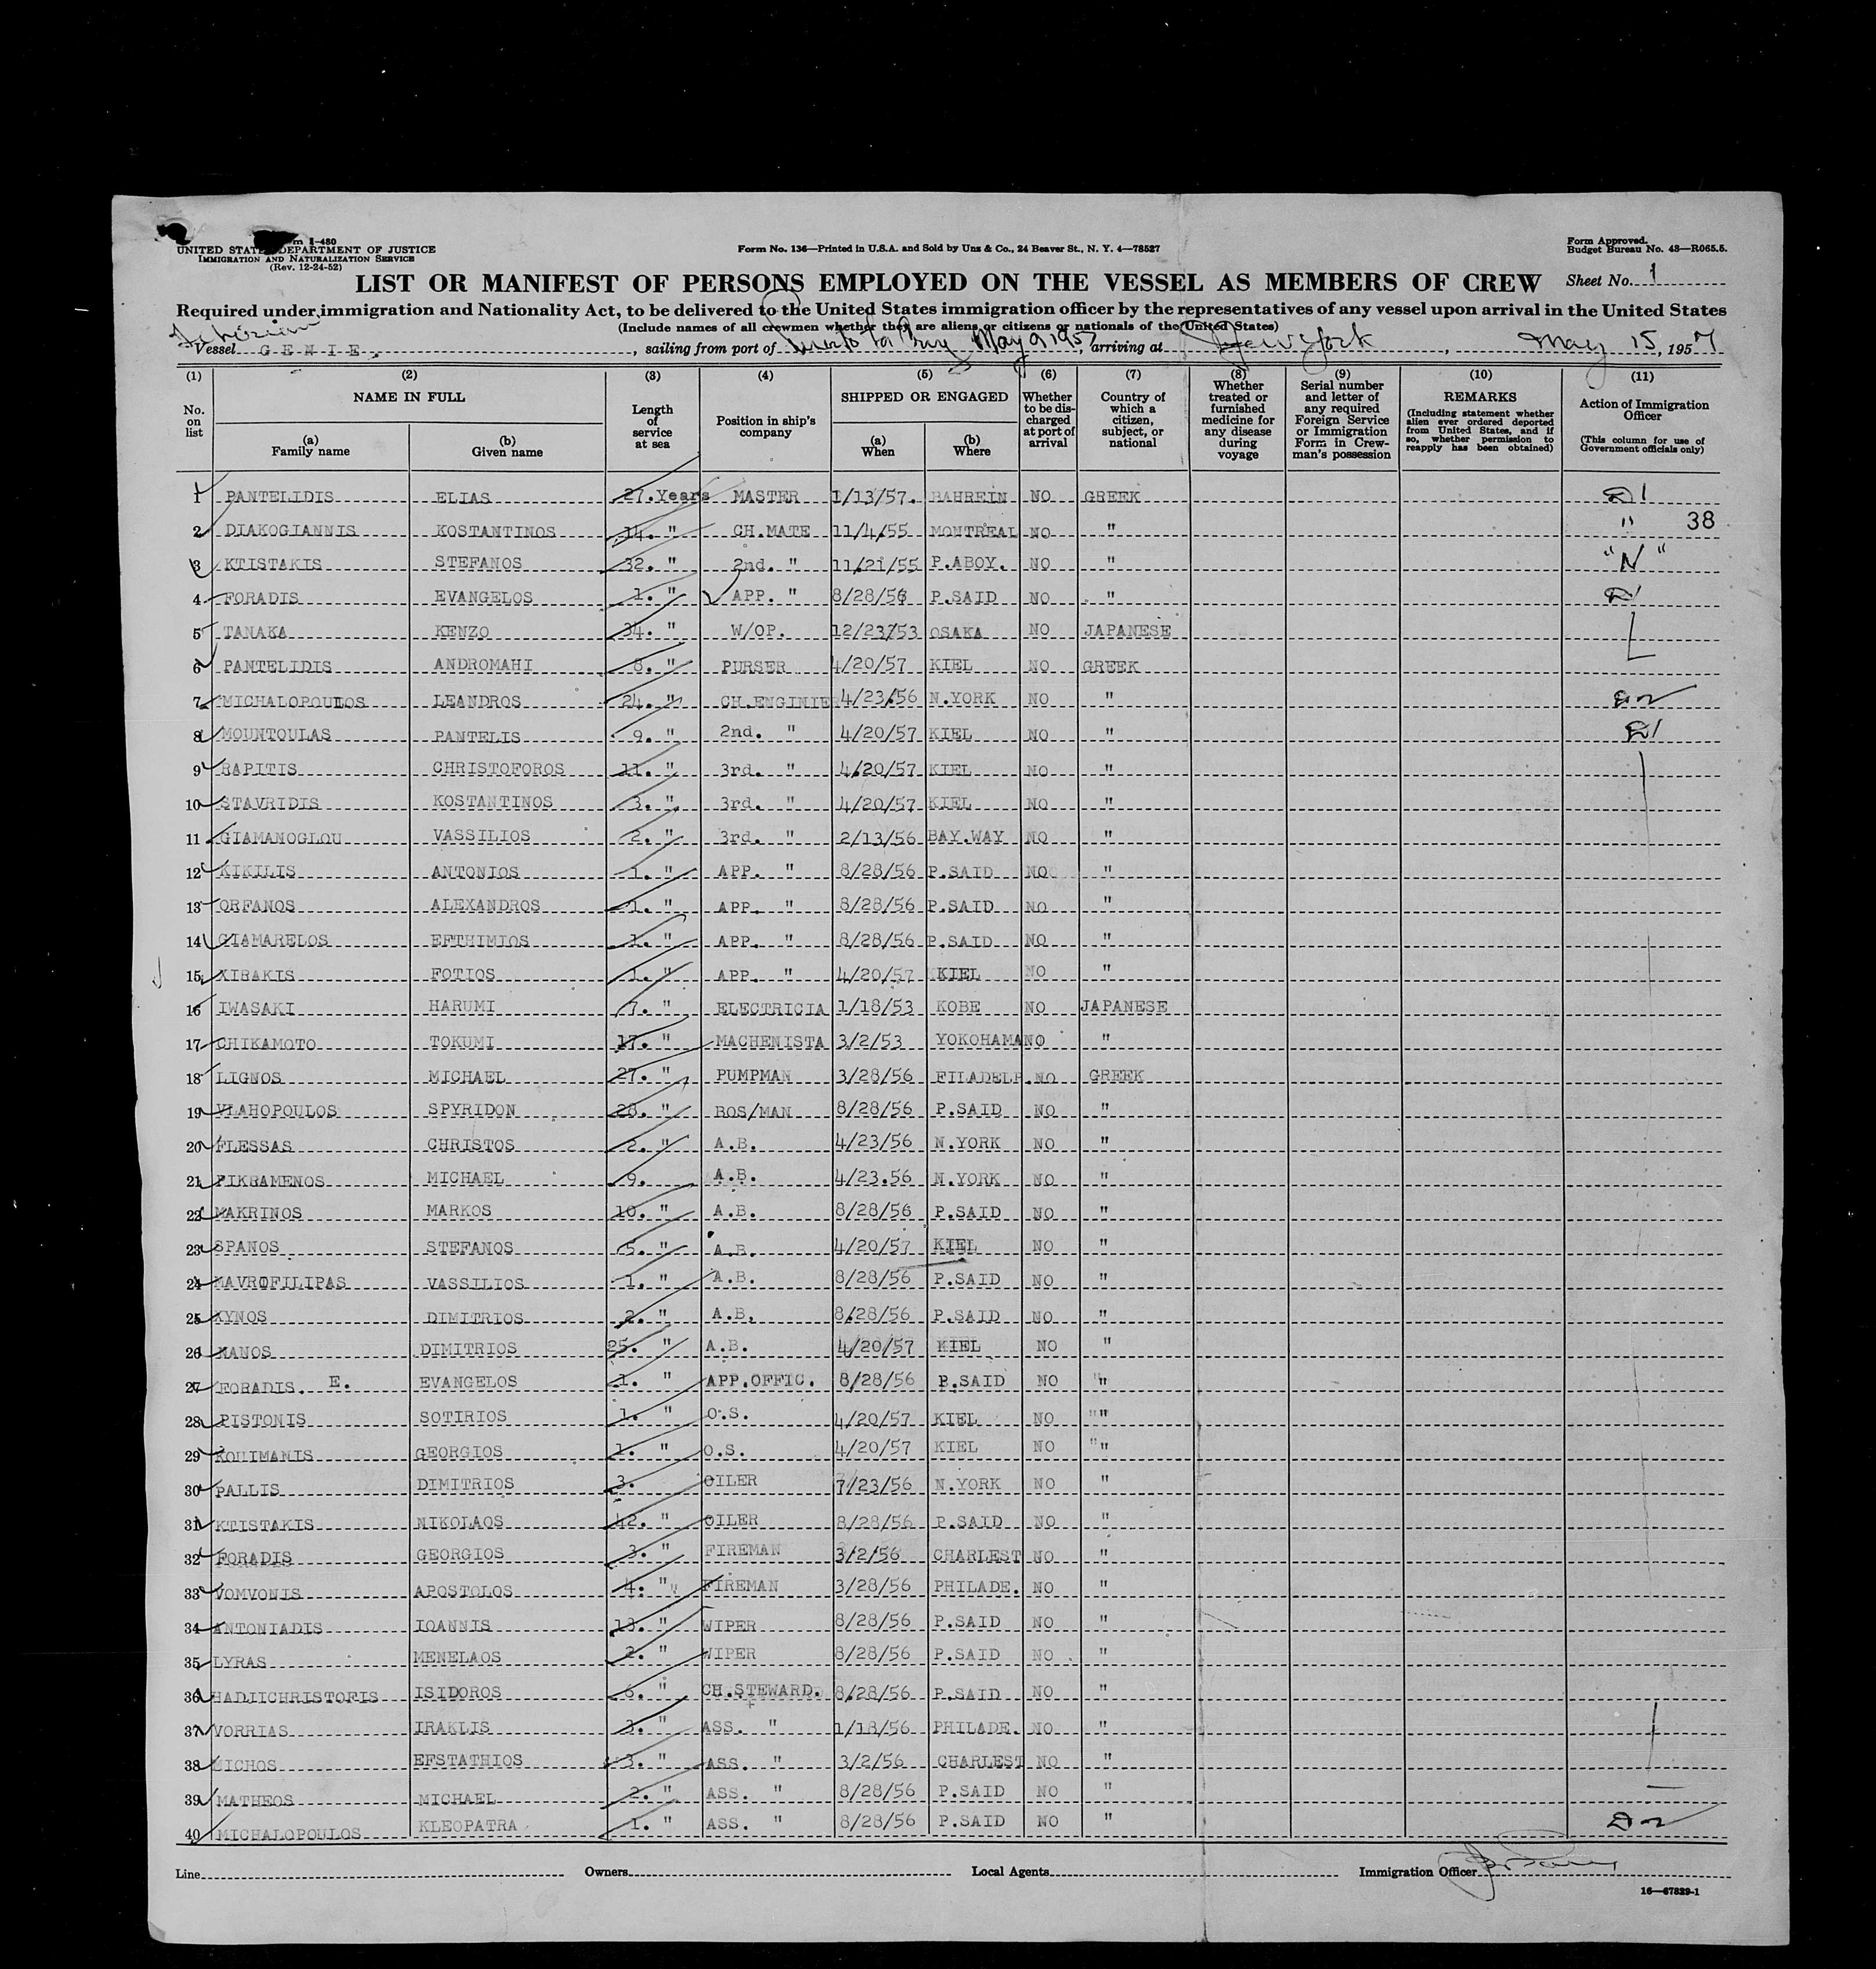 Form I-480
UNITED STATES DEPARTMENT OF JUSTICE
IMMIGRATION AND NATURALIZATION SERVICE
(Rev. 12-24-52)
Form No. 136—Printed in U.S.A. and Sold by Unz & Co., 24 Beaver St., N. Y. 4—78527
Form Approved.
Budget Bureau No. 43—R065.5.
LIST OR MANIFEST OF PERSONS EMPLOYED ON THE VESSEL AS MEMBERS OF CREW
Sheet No. 1
Required under immigration and Nationality Act, to be delivered to the United States immigration officer by the representatives of any vessel upon arrival in the United States
(Include names of all crewmen whether they are aliens or citizens or nationals of the United States)
Liberian
Vessel GENIE, sailing from port of Puerto La Cruz May 9 1957, arriving at New York, May 15, 1957
(1) (2) (3) (4) (5) (6) (7) (8) (9) (10) (11)
No. on list
NAME IN FULL
(a) Family name
(b) Given name
Length of service at sea
Position in ship's company
SHIPPED OR ENGAGED
(a) When
(b) Where
Whether to be discharged at port of arrival
Country of which a citizen, subject, or national
Whether treated or furnished medicine for any disease during voyage
Serial number and letter of any required Foreign Service or Immigration Form in Crewman's possession
REMARKS
(Including statement whether alien ever ordered deported from United States, and if so, whether permission to reapply has been obtained)
Action of Immigration Officer
(This column for use of Government officials only)
1 PANTELIDIS ELIAS 27.Years MASTER 1/13/57. BAHREIN NO GREEK D1
2 DIAKOGIANNIS KOSTANTINOS 14. " CH.MATE 11/4/55 MONTREAL NO " " 38
3 KTISTAKIS STEFANOS 32. " 2nd. " 11/21/55 P.ABOY. NO " "N"
4 FORADIS EVANGELOS 1. " APP. " 8/28/56 P.SAID NO " D1
5 TANAKA KENZO 34. " W/OP. 12/23/53 OSAKA NO JAPANESE
6 PANTELIDIS ANDROMAHI 8. " PURSER 4/20/57 KIEL NO GREEK
7 MICHALOPOULOS LEANDROS 24. " CH.ENGINIE 4/23.56 N.YORK NO " D2
8 MOUNTOULAS PANTELIS 9. " 2nd. " 4/20/57 KIEL NO " D1
9 RAPITIS CHRISTOFOROS 11. " 3rd. " 4.20/57 KIEL NO "
10 STAVRIDIS KOSTANTINOS 3. " 3rd. " 4/20/57 KIEL NO "
11 GIAMANOGLOU VASSILIOS 2. " 3rd. " 2/13/56 BAY.WAY NO "
12 KIKILIS ANTONIOS 1. " APP. " 8/28/56 P.SAID NO "
13 ORFANOS ALEXANDROS 1. " APP. " 8/28/56 P.SAID NO "
14 GIAMARELOS EFTHIMIOS 1. " APP. " 8/28/56 P.SAID NO "
15 XIRAKIS FOTIOS 1. " APP. " 4/20/57 KIEL NO "
16 IWASAKI HARUMI 7. " ELECTRICIA 1/18/53 KOBE NO JAPANESE
17 CHIKAMOTO TOKUMI 17. " MACHENISTA 3/2/53 YOKOHAMA NO "
18 LIGNOS MICHAEL 27. " PUMPMAN 3/28/56 FILADELP. NO GREEK
19 VLAHOPOULOS SPYRIDON 28. " BOS/MAN 8/28/56 P.SAID NO "
20 FLESSAS CHRISTOS 2. " A.B. 4/23/56 N.YORK NO "
21 PIKRAMENOS MICHAEL 9. A.B. 4/23.56 N.YORK NO "
22 MAKRINOS MARKOS 10. " A.B. 8/28/56 P.SAID NO "
23 SPANOS STEFANOS 5. " A.B. 4/20/57 KIEL NO "
24 MAVROFILIPAS VASSILIOS 1. " A.B. 8/28/56 P.SAID NO "
25 XYNOS DIMITRIOS 2. " A.B. 8.28/56 P.SAID NO "
26 MANOS DIMITRIOS 25. " A.B. 4/20/57 KIEL NO "
27 FORADIS. E. EVANGELOS 1. " APP.OFFIC. 8/28/56 P.SAID NO "
28 PISTONIS SOTIRIOS 1. " O.S. 4/20/57 KIEL NO ""
29 KOUIMANIS GEORGIOS 1. " O.S. 4/20/57 KIEL NO ""
30 PALLIS DIMITRIOS 3. OILER 7/23/56 N.YORK NO "
31 KTISTAKIS NIKOLAOS 42. " OILER 8/28/56 P.SAID NO "
32 FORADIS GEORGIOS 3. " FIREMAN 3/2/56 CHARLEST NO "
33 VOMVONIS APOSTOLOS 4. " FIREMAN 3/28/56 PHILADE. NO "
34 ANTONIADIS IOANNIS 13. " WIPER 8/28/56 P.SAID NO "
35 LYRAS MENELAOS 2. " WIPER 8/28/56 P.SAID NO "
36 HADJICHRISTOFIS ISIDOROS 6. " CH.STEWARD. 8.28/56 P.SAID NO "
37 VORRIAS IRAKLIS 3. " ASS. " 1/18/56 PHILADE. NO "
38 MICHOS EFSTATHIOS 3. " ASS. " 3/2/56 CHARLEST NO "
39 MATHEOS MICHAEL 2. " ASS. " 8/28/56 P.SAID NO "
40 MICHALOPOULOS KLEOPATRA 1. " ASS. " 8/28/56 P.SAID NO " D2
Line Owners Local Agents Immigration Officer
16—67829-1